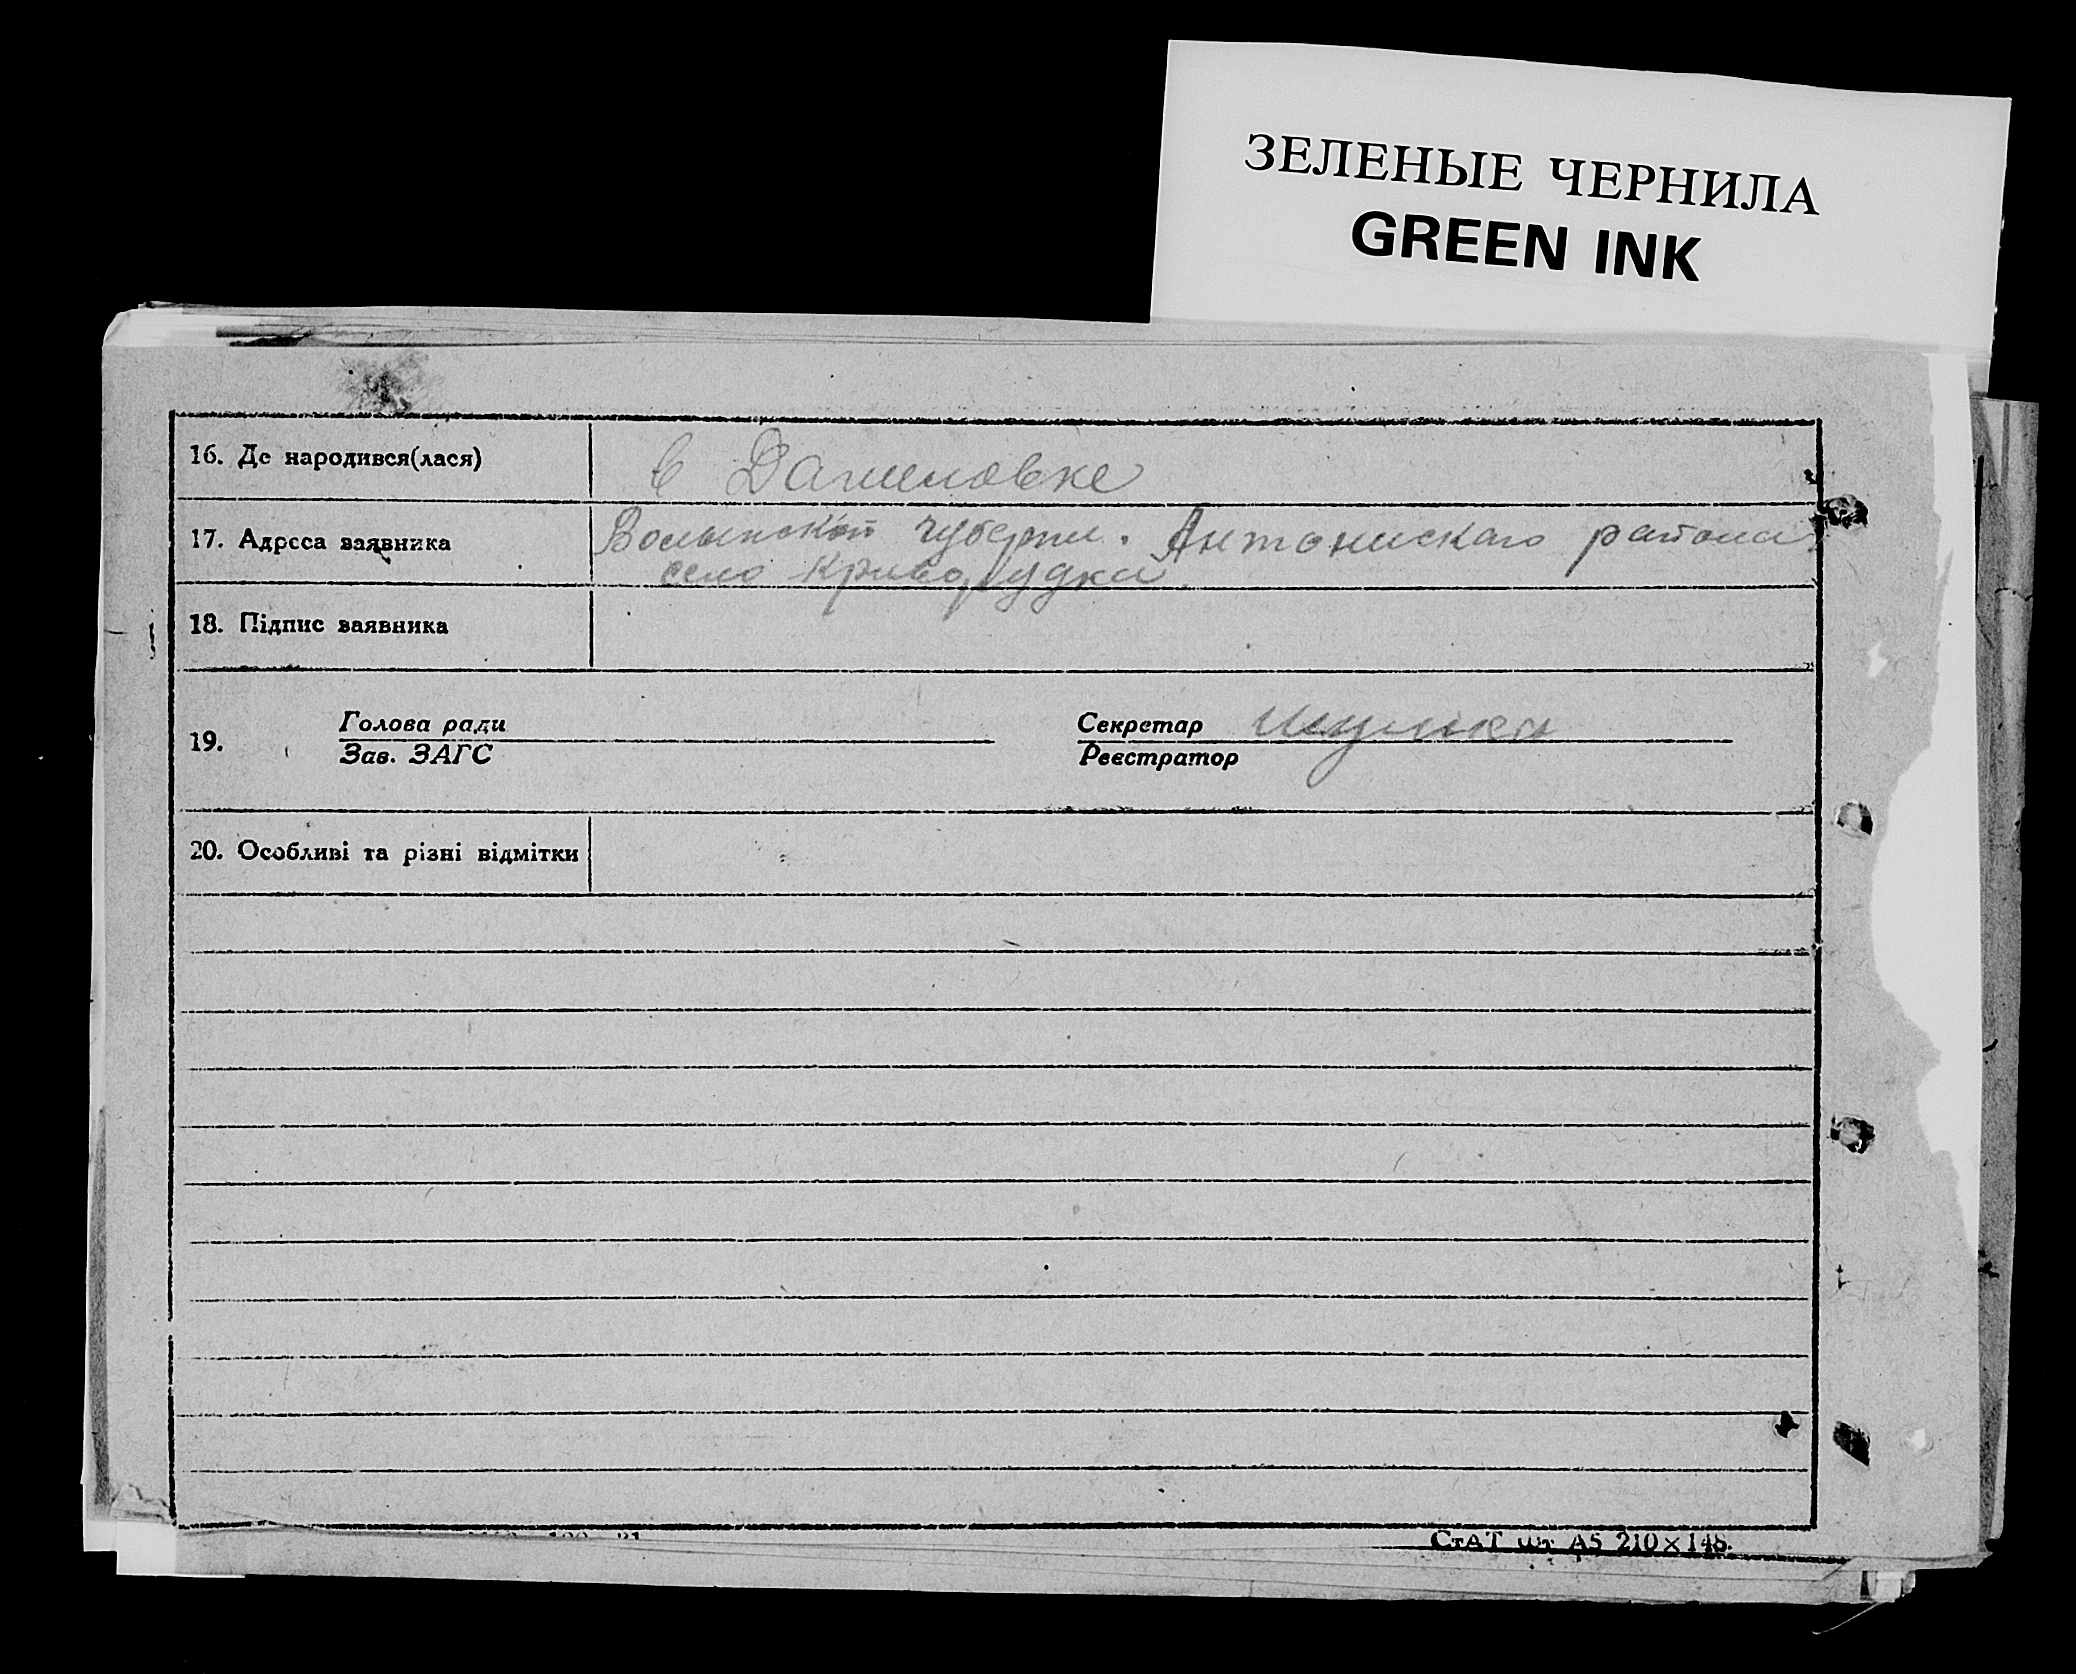 ЗЕЛЕНЫЕ ЧЕРНИЛА
GREEN INK
16. Де народився(лася) в Даниловке
17. Адреса заявника Волынской губерни. Антонискаго района
село Криворудка
18. Підпис заявника
19. Голова ради Секретар
Зав. ЗАГС Реєстратор
20. Особливі та різні відмітки
СтАТ шт А5 210×148.